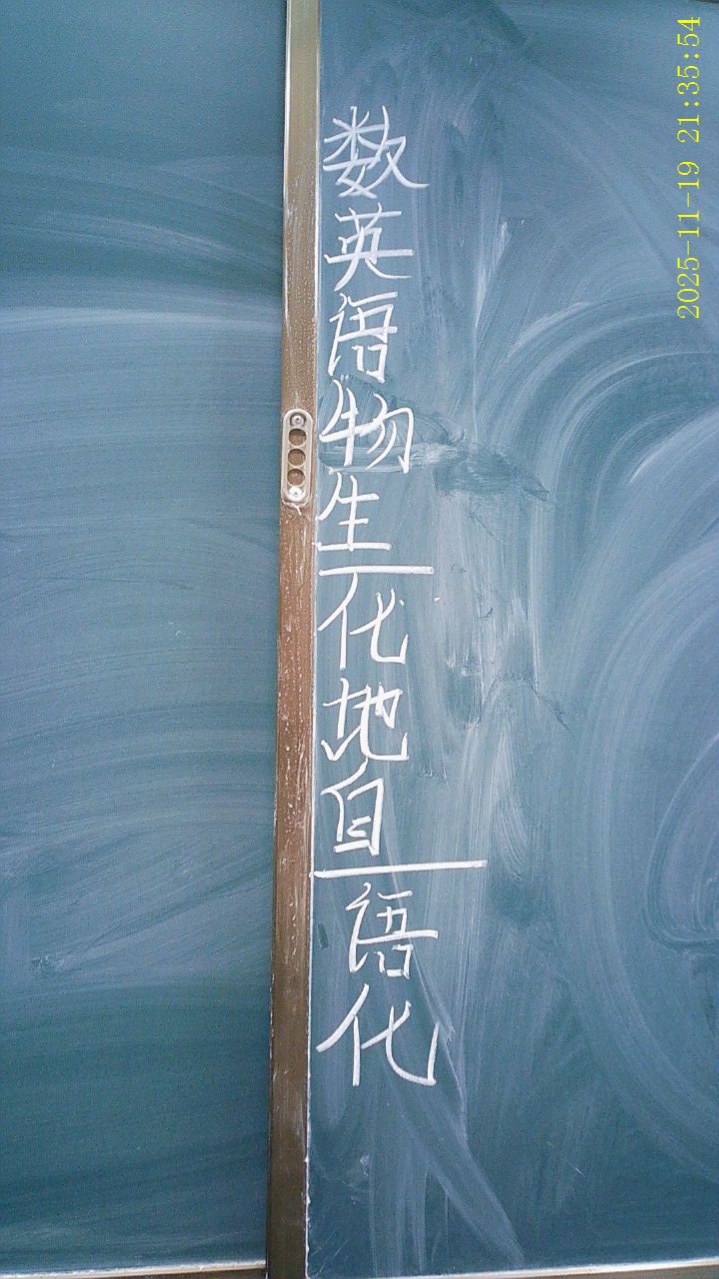 数
英
语
物
生
化
地
自
语
化
2025-11-19 21:35:54